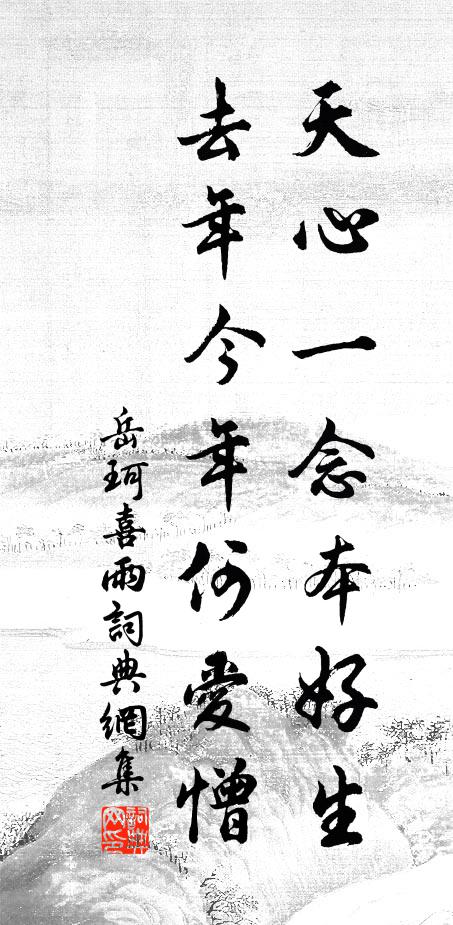 天心一念本好生
去年今年何愛憎
岳珂喜雨詞典網集